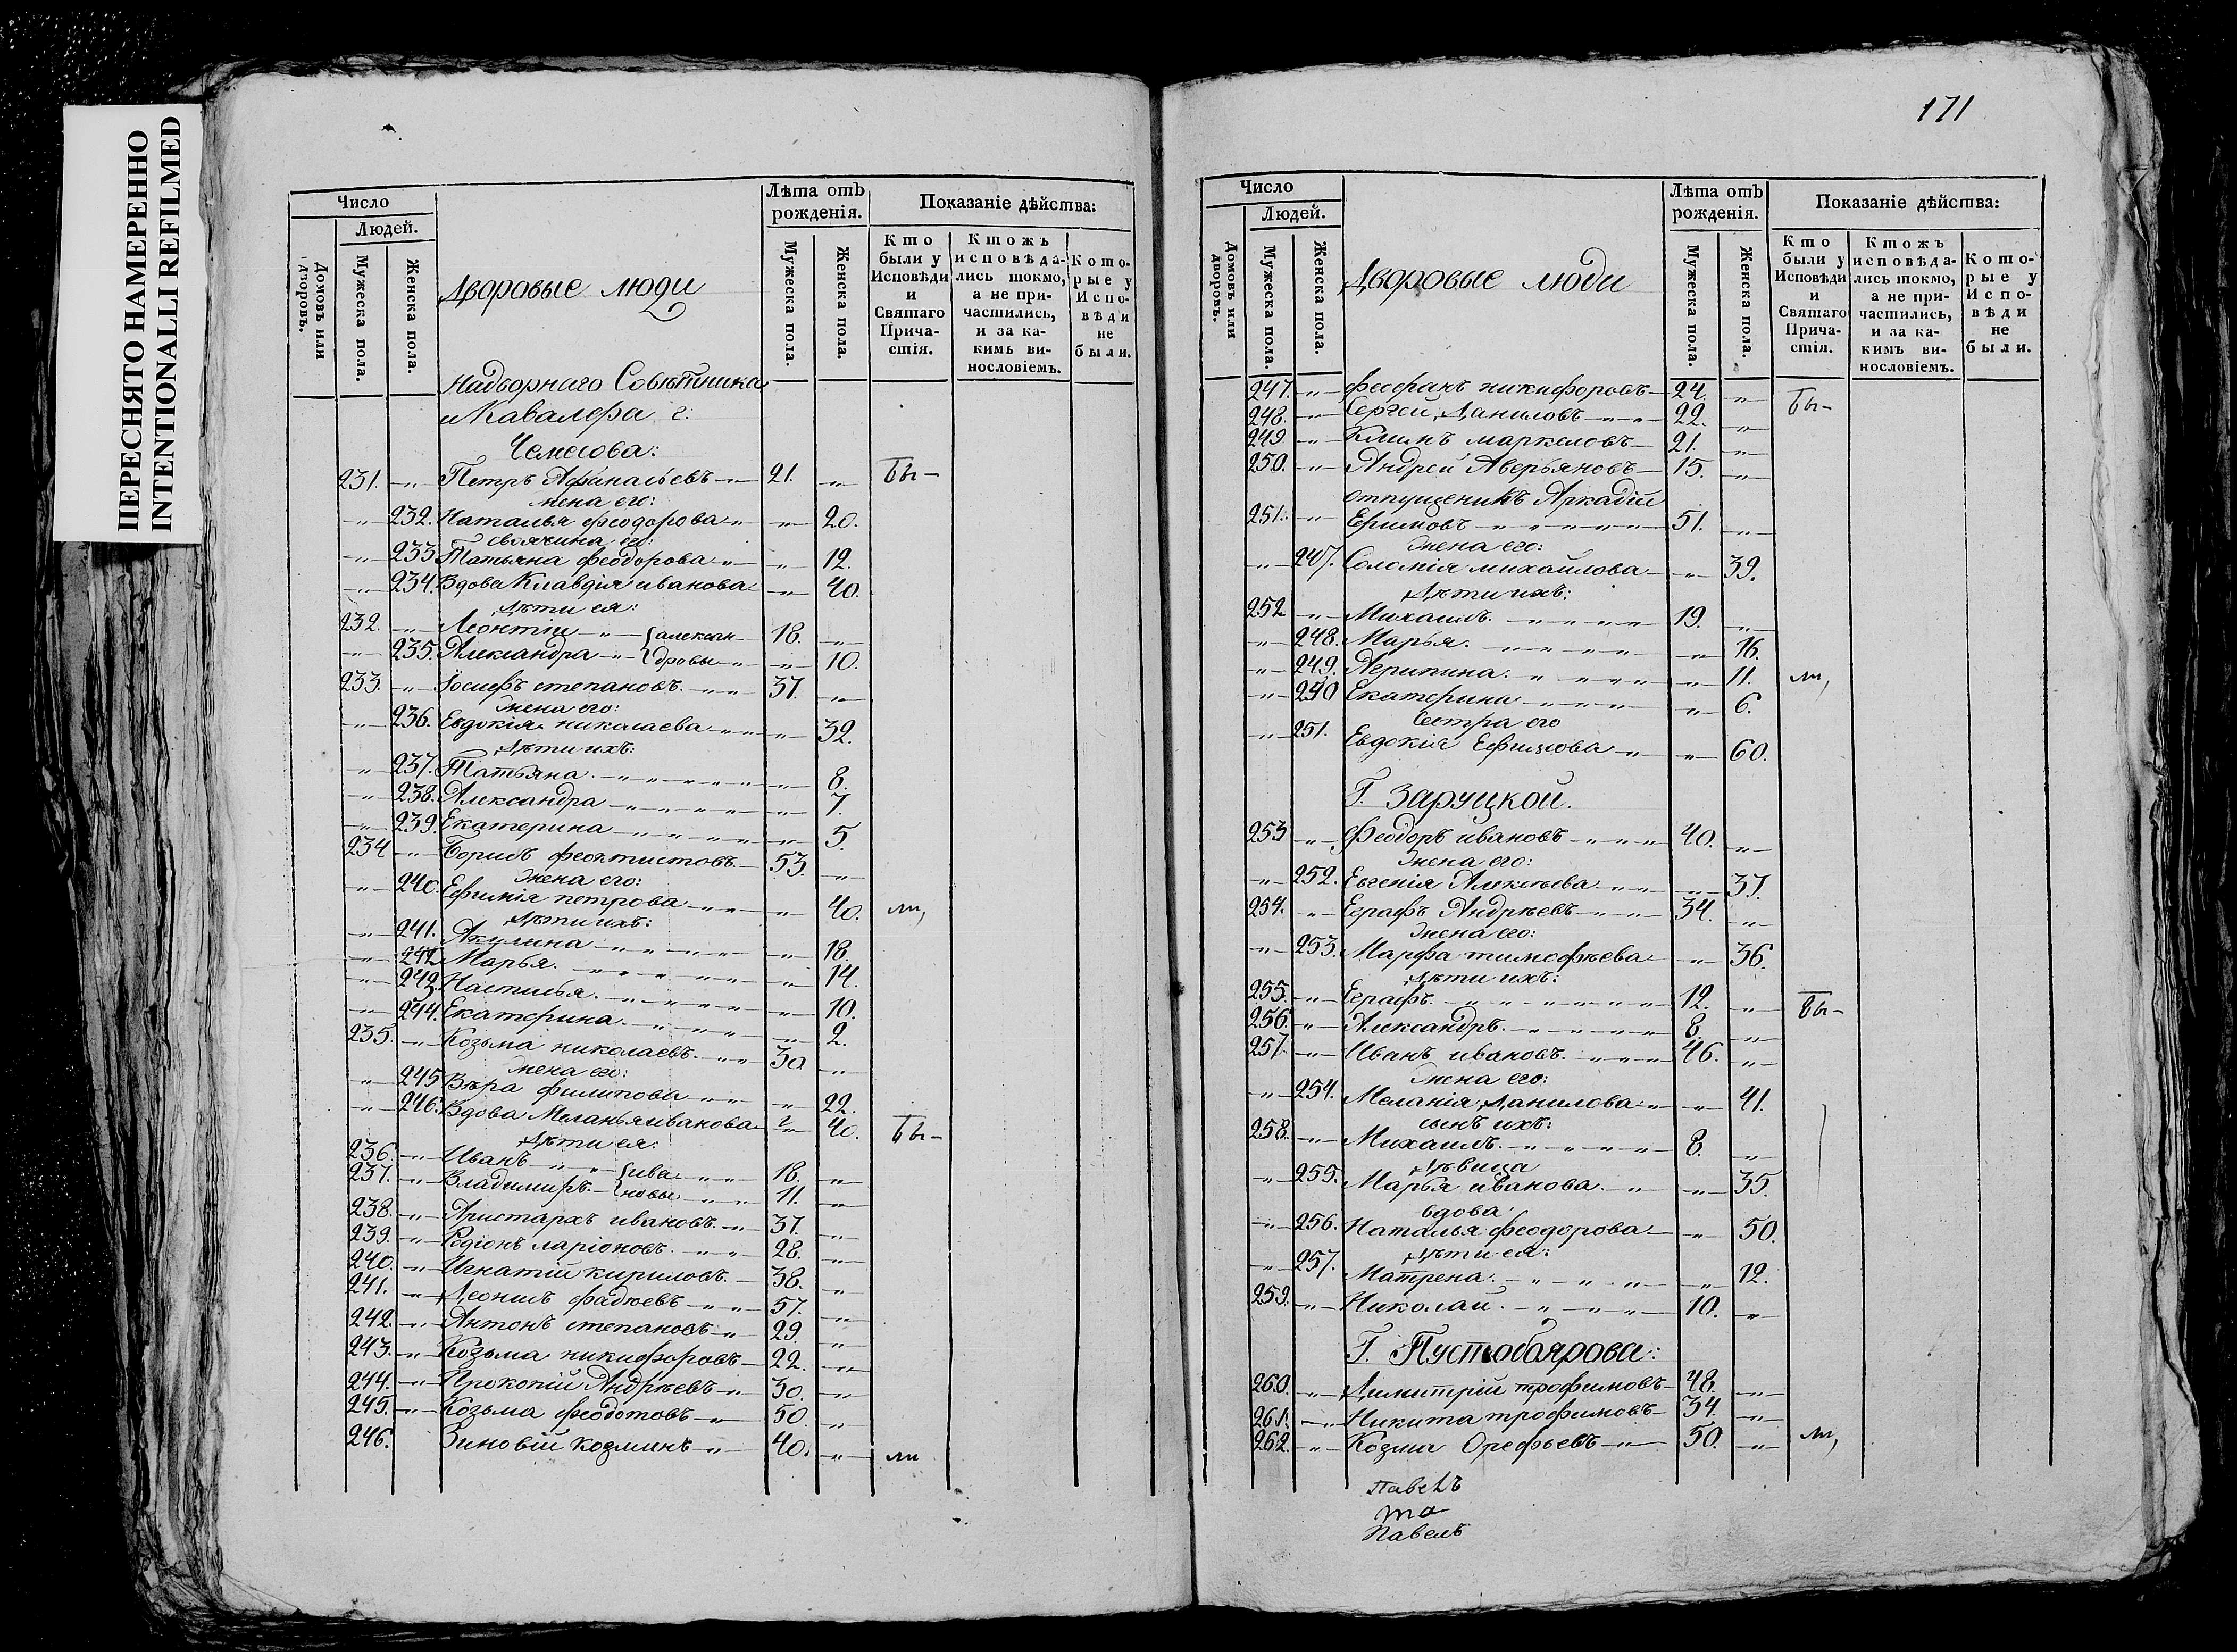 ПЕРЕСНЯТО НАМЕРЕННО
INTENTIONALLI REFILMED
Число
Людей.
Домовъ или дворовъ.
Мужеска пола.
Женска пола.
Дворовые люди
Лѣта отъ рожденія.
Мужеска пола.
Женска пола.
Показаніе дѣйства:
Кто были у Исповѣди и Святаго Причастія.
Ктожъ исповѣдались токмо, а не причастились, и за какимъ винословіемъ.
Которые у Исповѣди не были.
Надворнаго Совѣтника
и Кавалера г:
Чемесова:
231. Петръ Афанасьевъ 21. бы-
жена его:
232. Наталья феодорова 20.
своячина его:
233 Татьяна феодорова 12.
234. Вдова Клавдія иванова 40.
Дѣти ея:
232. Леонтій алексан- 18.
235. Александра дровы 10.
233. Іосифъ степановъ 37.
Жена его:
236. Евдокія николаева 32.
Дѣти ихъ:
237. Татьяна 8.
238. Александра 7.
239. Екатерина 5.
234 Борисъ феоктистовъ 53.
Жена его:
240. Ефимія петрова 40. ли,
Дѣти ихъ:
241. Акулина 18.
242. Марья 14.
243. Настасья 10.
244. Екатерина 2.
235. Козьма николаевъ 30
Жена его:
245 Вѣра филипова 22.
246. Вдова Меланья иванова 40. бы-
Дѣти ея:
236. Иванъ ива- 18.
237. Владимиръ новы 11.
238. Аристархъ ивановъ 37.
239. Родіонъ ларіоновъ 28.
240. Игнатій кириловъ 38.
241. Леонилъ фадѣевъ 57.
242. Антонъ степановъ 29.
243. Козьма никифоровъ 22.
244. Прокопій Андрѣевъ 30.
245. Козьма феодотовъ 50.
246. Зиновій козминъ 40. ли
171
Число
Людей.
Домовъ или дворовъ.
Мужеска пола.
Женска пола.
Дворовые люди
Лѣта отъ рожденія.
Мужеска пола.
Женска пола.
Показаніе дѣйства:
Кто были у Исповѣди и Святаго Причастія.
Ктожъ исповѣдались токмо, а не причастились, и за какимъ винословіемъ.
Которые у Исповѣди не были.
247. феофанъ никифоровъ 24. бы-
248. Сергей Даниловъ 22.
249 Климъ маркеловъ 21.
250. Андрей Аверьяновъ 15.
отпущеникъ Аркадій
251. Ефимовъ 51.
Жена его:
247. Соломія михайлова 39.
Дѣти ихъ:
252 Михаилъ 19.
248. Марья 16.
249. Агрипина 11. ли,
250 Екатерина 6.
Сестра его
251. Евдокія Ефимова 60.
Г. Заруцкой.
253 феодоръ ивановъ 40.
Жена его:
252. Евгенія Алексѣева 37.
254. Еграфъ Андрѣевъ 34.
Жена его:
253. Марфа тимофѣева 36.
Дѣти ихъ:
255. Еграфъ 12. бы-
256. Александръ 8.
257 Иванъ ивановъ 46.
Жена его:
254. Меланія Данилова 41.
сынъ ихъ:
258. Михаилъ 8.
Дѣвица
255. Марья иванова 35.
вдова
256. Наталья феодорова 50.
Дѣти ея:
257. Матрена 12.
259. Николай 10.
Г. Пустобоярова:
260. Димитрій трофимовъ 48.
261. Никита трофимовъ 34.
262. Козма Орефьевъ 50. ли,
Павелъ
та
Павелъ